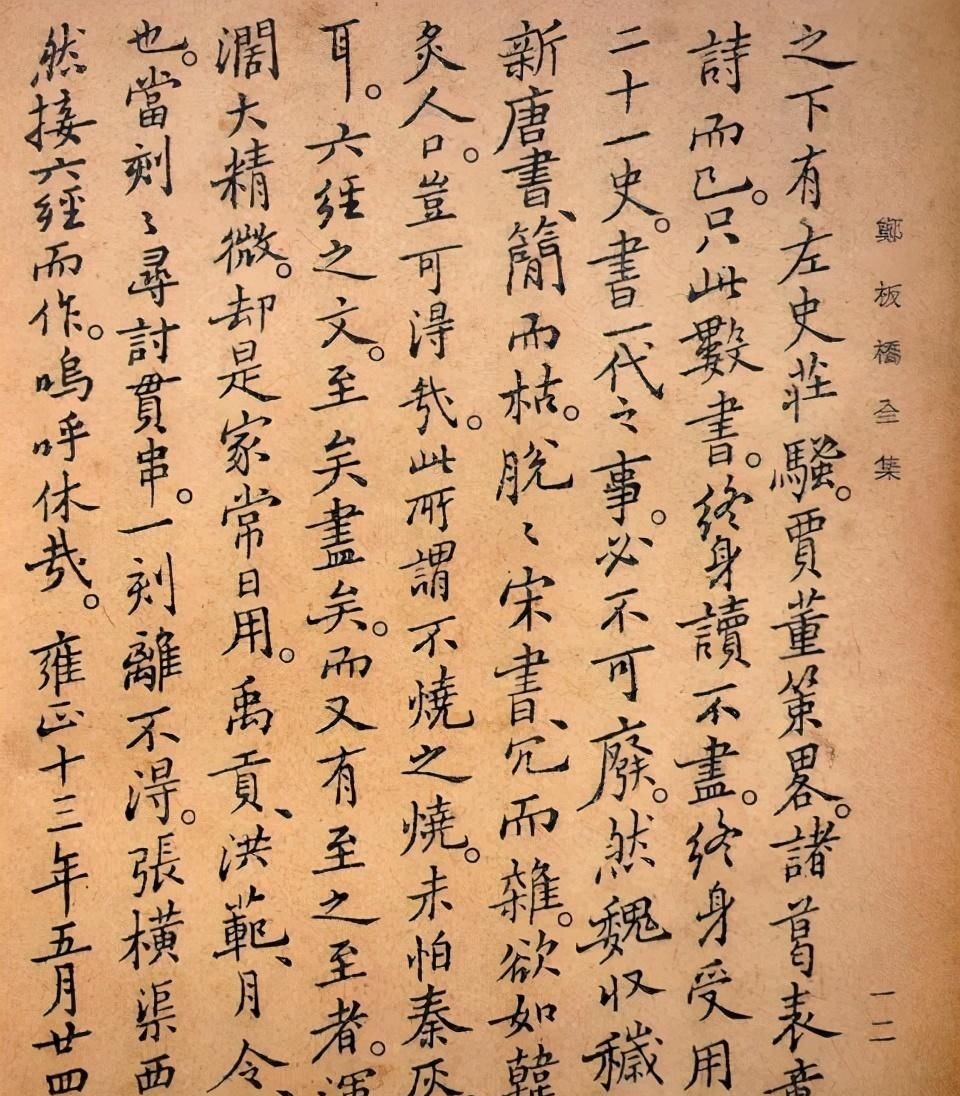 鄭板橋全集
一二
之下有左史莊騷。賈董策畧。諸葛表
詩而已。只此數書。終身讀不盡。終身受用
二十一史。書一代之事。必不可廢。然魏收穢
新唐書、簡而枯。脫〻宋書、冗而雜。欲如韓
炙人口。豈可得哉。此所謂不燒之燒。未怕秦灰
耳。六經之文。至矣盡矣。而又有至之至者。渾
濶大精微。却是家常日用。禹貢、洪範、月令、
也。當刻〻尋討貫串。一刻離不得。張橫渠西
然接六經而作。嗚呼休哉。雍正十三年五月廿四